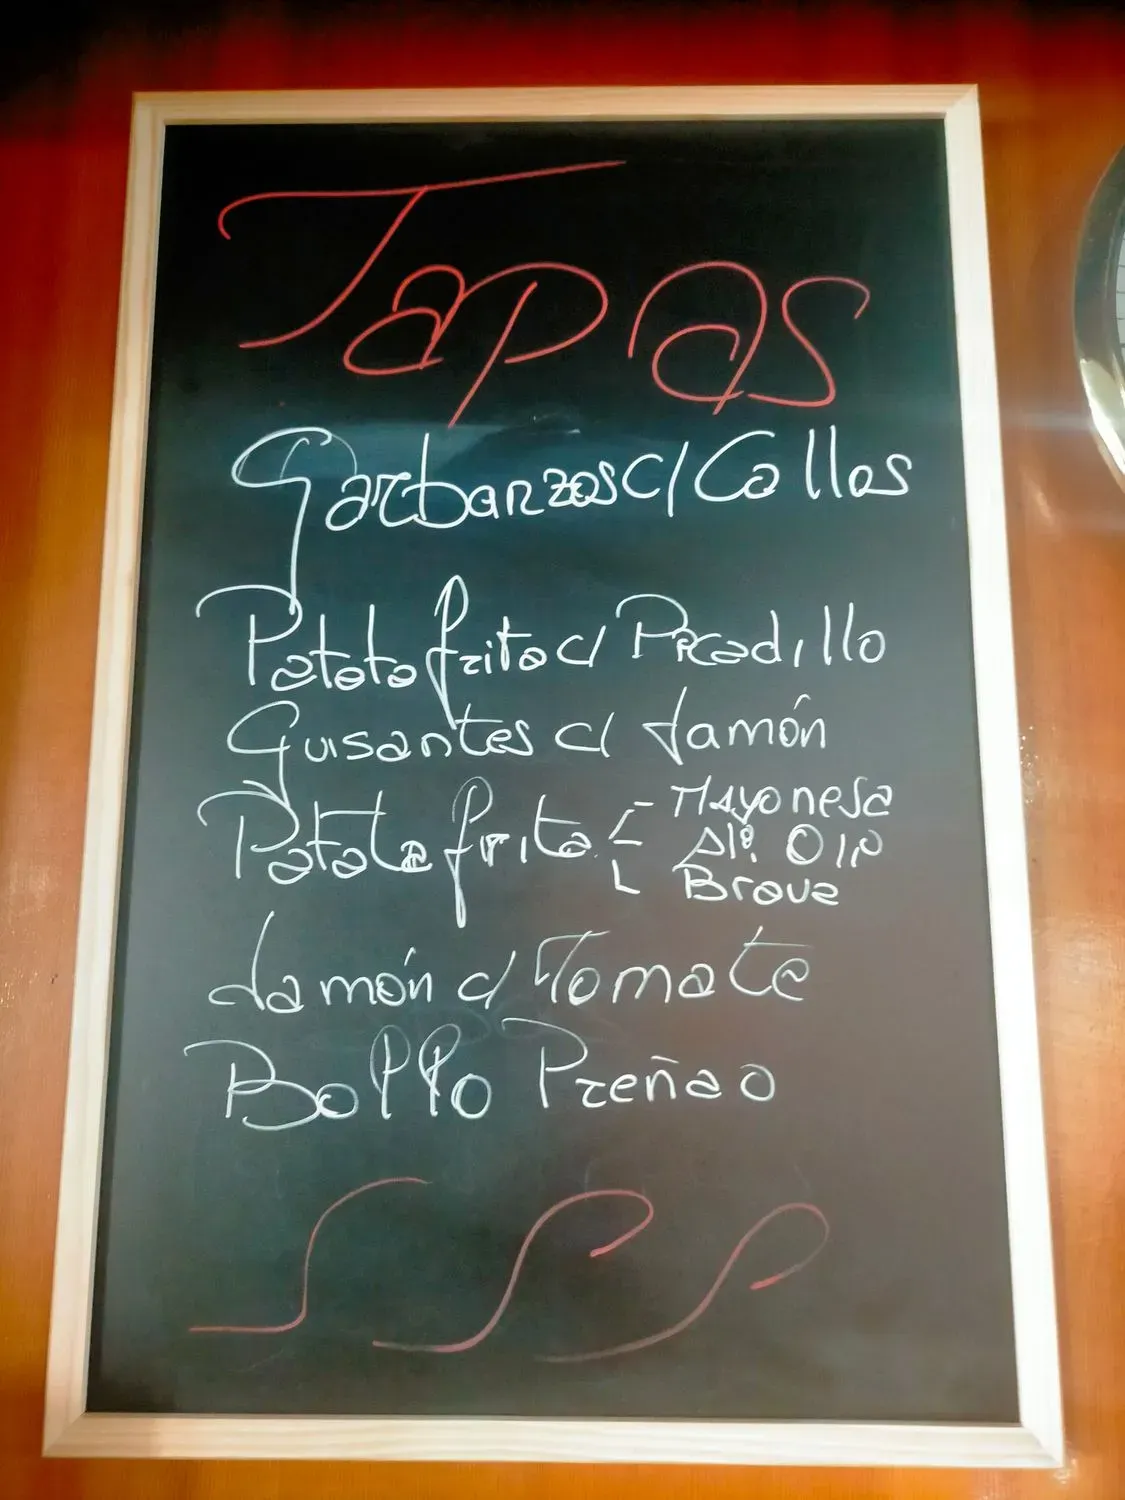 Tapas
Garbanzos c/ Callos
Patata frita c/ Picadillo
Guisantes c/ Jamón
Patata frita - Mayonesa
Ali Oli
Brava
Jamón c/ Tomate
Bollo Preñao